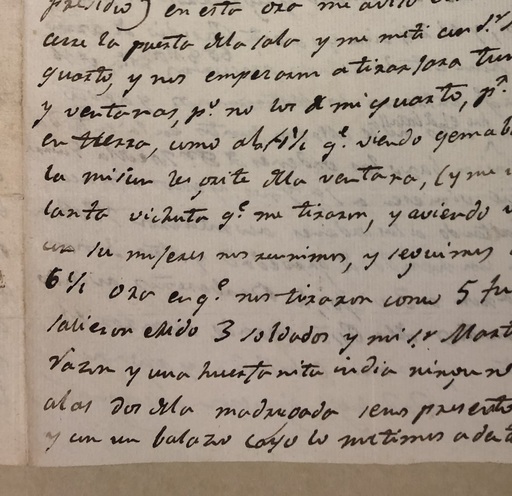 presidio) en esta ora me aviso
cerre la puerta dela sala y me meti con Sr
quarto, y nos empezaron a tirar para
y ventanas, pr. no los de mi quarto, pr.
en tierra, como alas 4½ qe. viendo qe
la mision les grite dela ventana, (y me
tanta qe. me tiraron, y aviendo
con su mujeres nos reunimos, y seguimos
6½ ora en qe. nos tiraron como 5
salieron erido 3 soldados y mi Sr Mart
razon y una huerfanita india ninguno
alas dos dela madrugada senos presento
y con un balazo cayo lo metimos adent